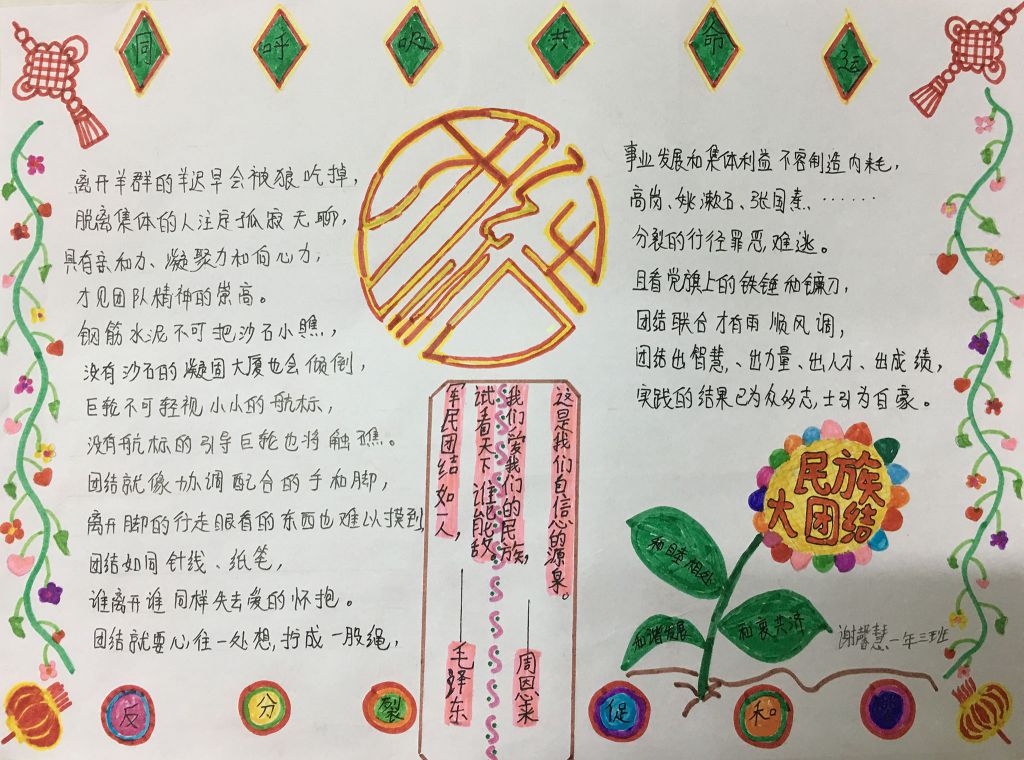 同呼吸共命运
离开羊群的羊迟早会被狼吃掉，
脱离集体的人注定孤寂无聊，
具有亲和力、凝聚力和向心力，
才见团队精神的崇高。
钢筋水泥不可把沙石小瞧，
没有沙石的凝固大厦也会倾倒，
巨轮不可轻视小小的航标，
没有航标的引导巨轮也将触礁。
团结就像协调配合的手和脚，
离开脚的行走眼看的东西也难以摸到，
团结如同针线、纸笔，
谁离开谁同样失去爱的怀抱。
团结就要心往一处想，拧成一股绳，
军民团结如一人，
试看天下谁能敌。
——毛泽东
我们爱我们的民族，
这是我们自信心的源泉。
——周恩来
事业发展和集体利益不容制造内耗，
高岗、姚漱石、张国焘、……
分裂的行径罪恶难逃。
且看党旗上的铁锤和镰刀，
团结联合才有雨顺风调，
团结出智慧、出力量、出人才、出成绩，
实践的结果已为众多志，士引为自豪。
民族
大团结
和睦相处
和谐发展
和衷共济
谢馨慧一年三班
反分裂促和